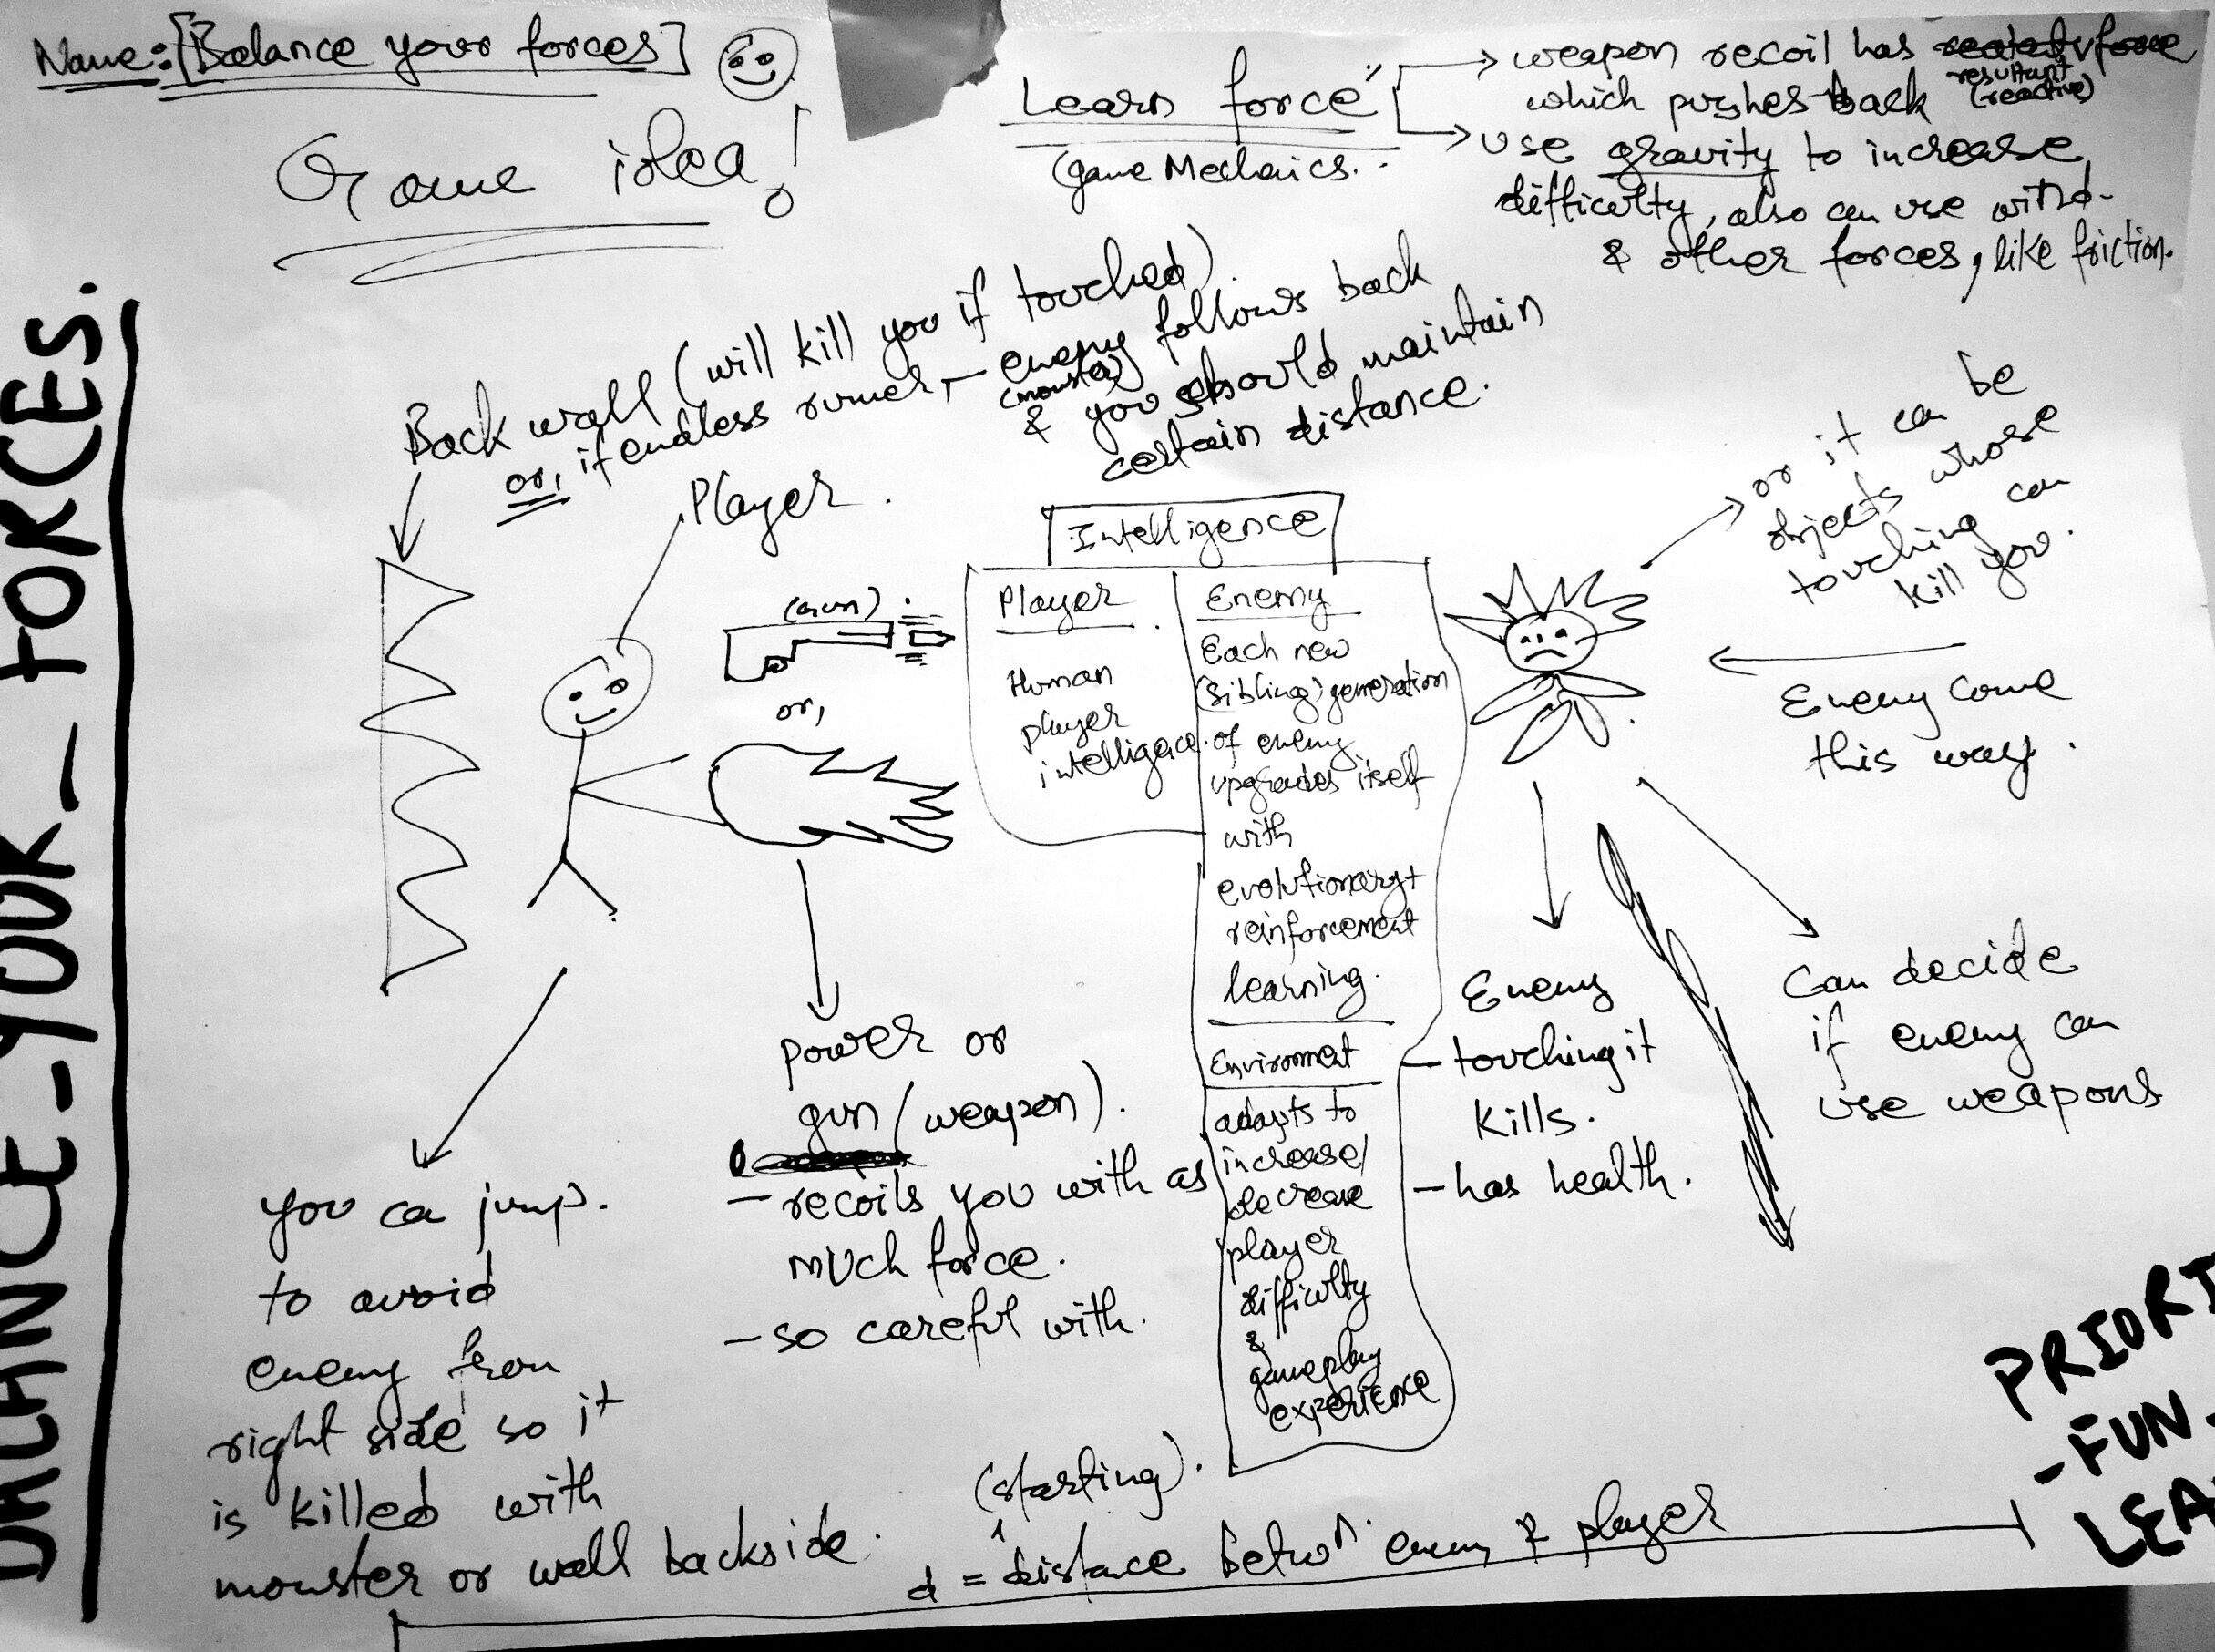 Name:[Balance your forces]
Game idea!
Learn force"
(game Mechaics..
weapon recoil has force
resultant
which pushes back (reactive)
use gravity to increase
difficulty, also can use wind.
& other forces, like friction.
Back wall (will kill you if touched).
or, if endless runner, - enemy follows back
(monster)
& you should maintain
certain distance.
Player.
(Gun).
or,
Intelligence
Player
Human
player
intelligace.
Enemy
Each new
(sibling) generation
of enemy
upgrades itself
with
evolutionary+
reinforcement
learning.
Enviroment
adapts to
increase/
decrease
player
difficulty
&
gameplay
experience
or it can be
objects whose
touching can
kill you.
Enemy come
this way.
Can decide
if enemy can
use weapons
Enemy
- touching it
kills.
- has health.
power or
gun (weapon).
- recoils you with as
much force.
- so careful with.
you ca jump.
to avoid
enemy from
right side so it
is killed with
monster or wall backside.
(starting).
d = distance betwn. enemy & player
BALANCE-YOUR-FORCES.
PRIORI
-FUN
LEA